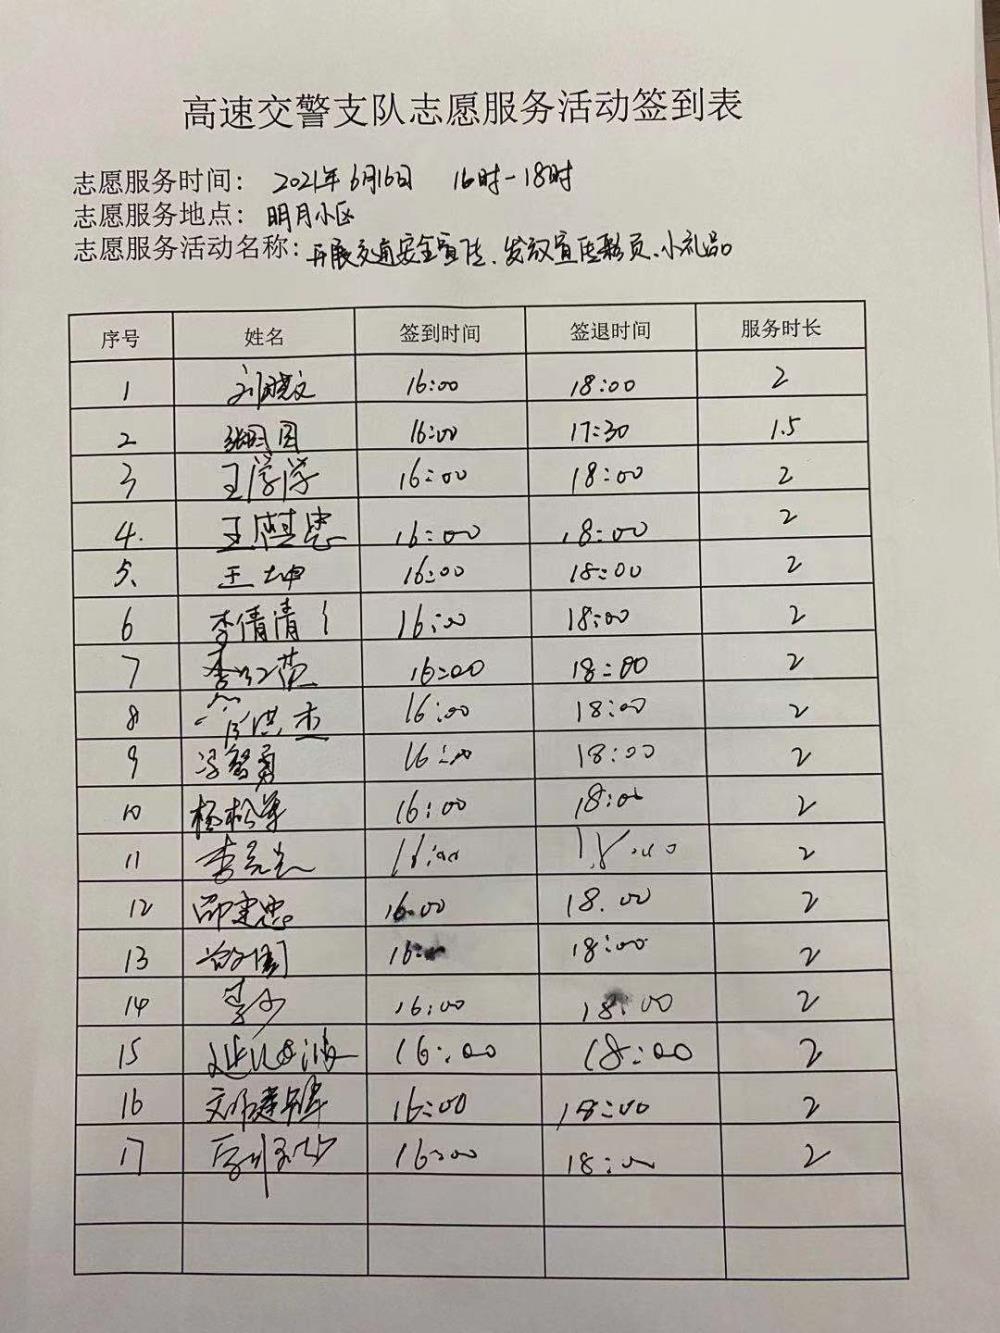 高速交警支队志愿服务活动签到表
志愿服务时间： 2021年6月16日 16时-18时
志愿服务地点：明月小区
志愿服务活动名称：开展交通安全宣传、发放宣传彩页、小礼品。
序号 姓名 签到时间 签退时间 服务时长
1 刘晓文 16:00 18:00 2
2 16:00 17:30 1.5
3 王学学 16:00 18:00 2
4. 王 忠 16:00 18:00 2
5、 王坤 16:00 18:00 2
6 李倩清 16:00 18:00 2
7 李红英 16:00 18:00 2
8 洪杰 16:00 18:00 2
9 冯智勇 16:00 18:00 2
10 杨松军 16:00 18:00 2
11 李 16:00 18:00 2
12 邵建忠 16:00 18:00 2
13 16:00 18:00 2
14 李 16:00 18:00 2
15 16:00 18:00 2
16 16:00 18:00 2
17 16:00 18:00 2